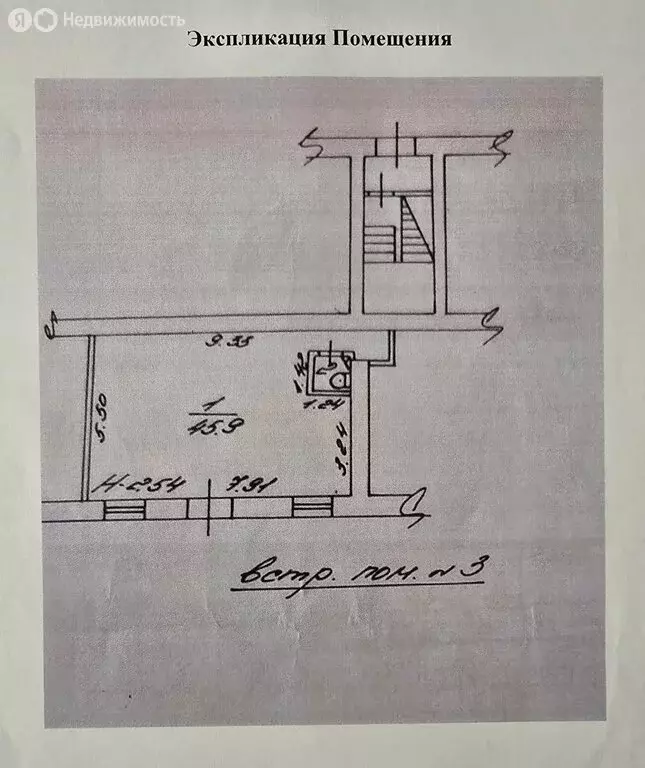 Я Недвижимость
Экспликация Помещения
9.35
1.24
5.50
1
45.9
3.84
H-2.54
7.91
встр. пом. №3